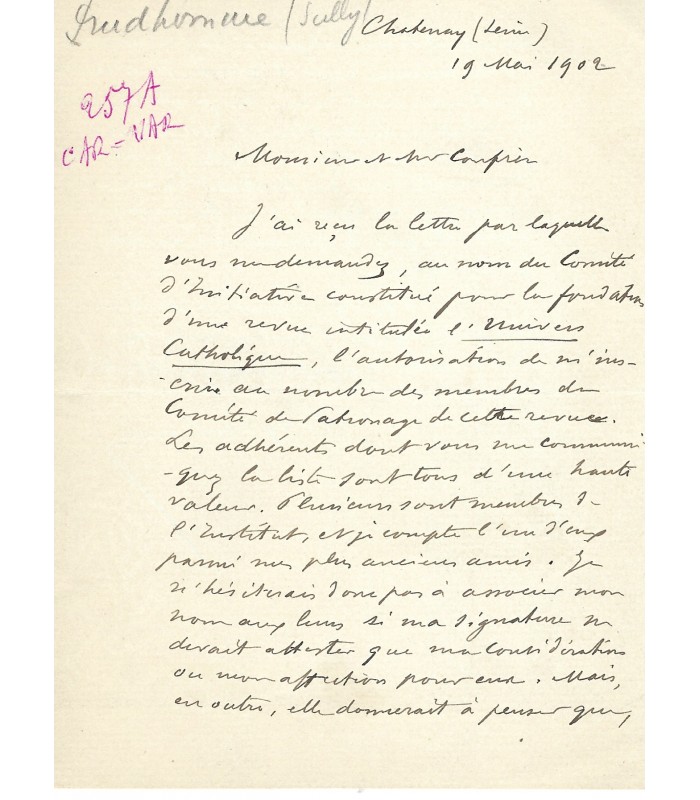 Prudhomme (Sully)
Chatenay (Seine)
19 Mai 1902
257A
CAR = VAR
Monsieur et cher Confrère
J'ai reçu la lettre par laquelle
vous me demandez, au nom du Comité
d'Initiative constitué pour la fondation
d'une revue intitulée l'Univers
Catholique, l'autorisation de m'ins-
-crire au nombre des membres du
Comité de Patronage de cette revue.
Les adhérents dont vous me communi-
-quez la liste sont tous d'une haute
valeur. Plusieurs sont membres de
l'Institut, et je compte l'un d'eux
parmi mes plus anciens amis. Je
n'hésiterais donc pas à associer mon
nom aux leurs si ma signature ne
devait attester que ma considération
ou mon affection pour eux. Mais,
en outre, elle donnerait à penser que,